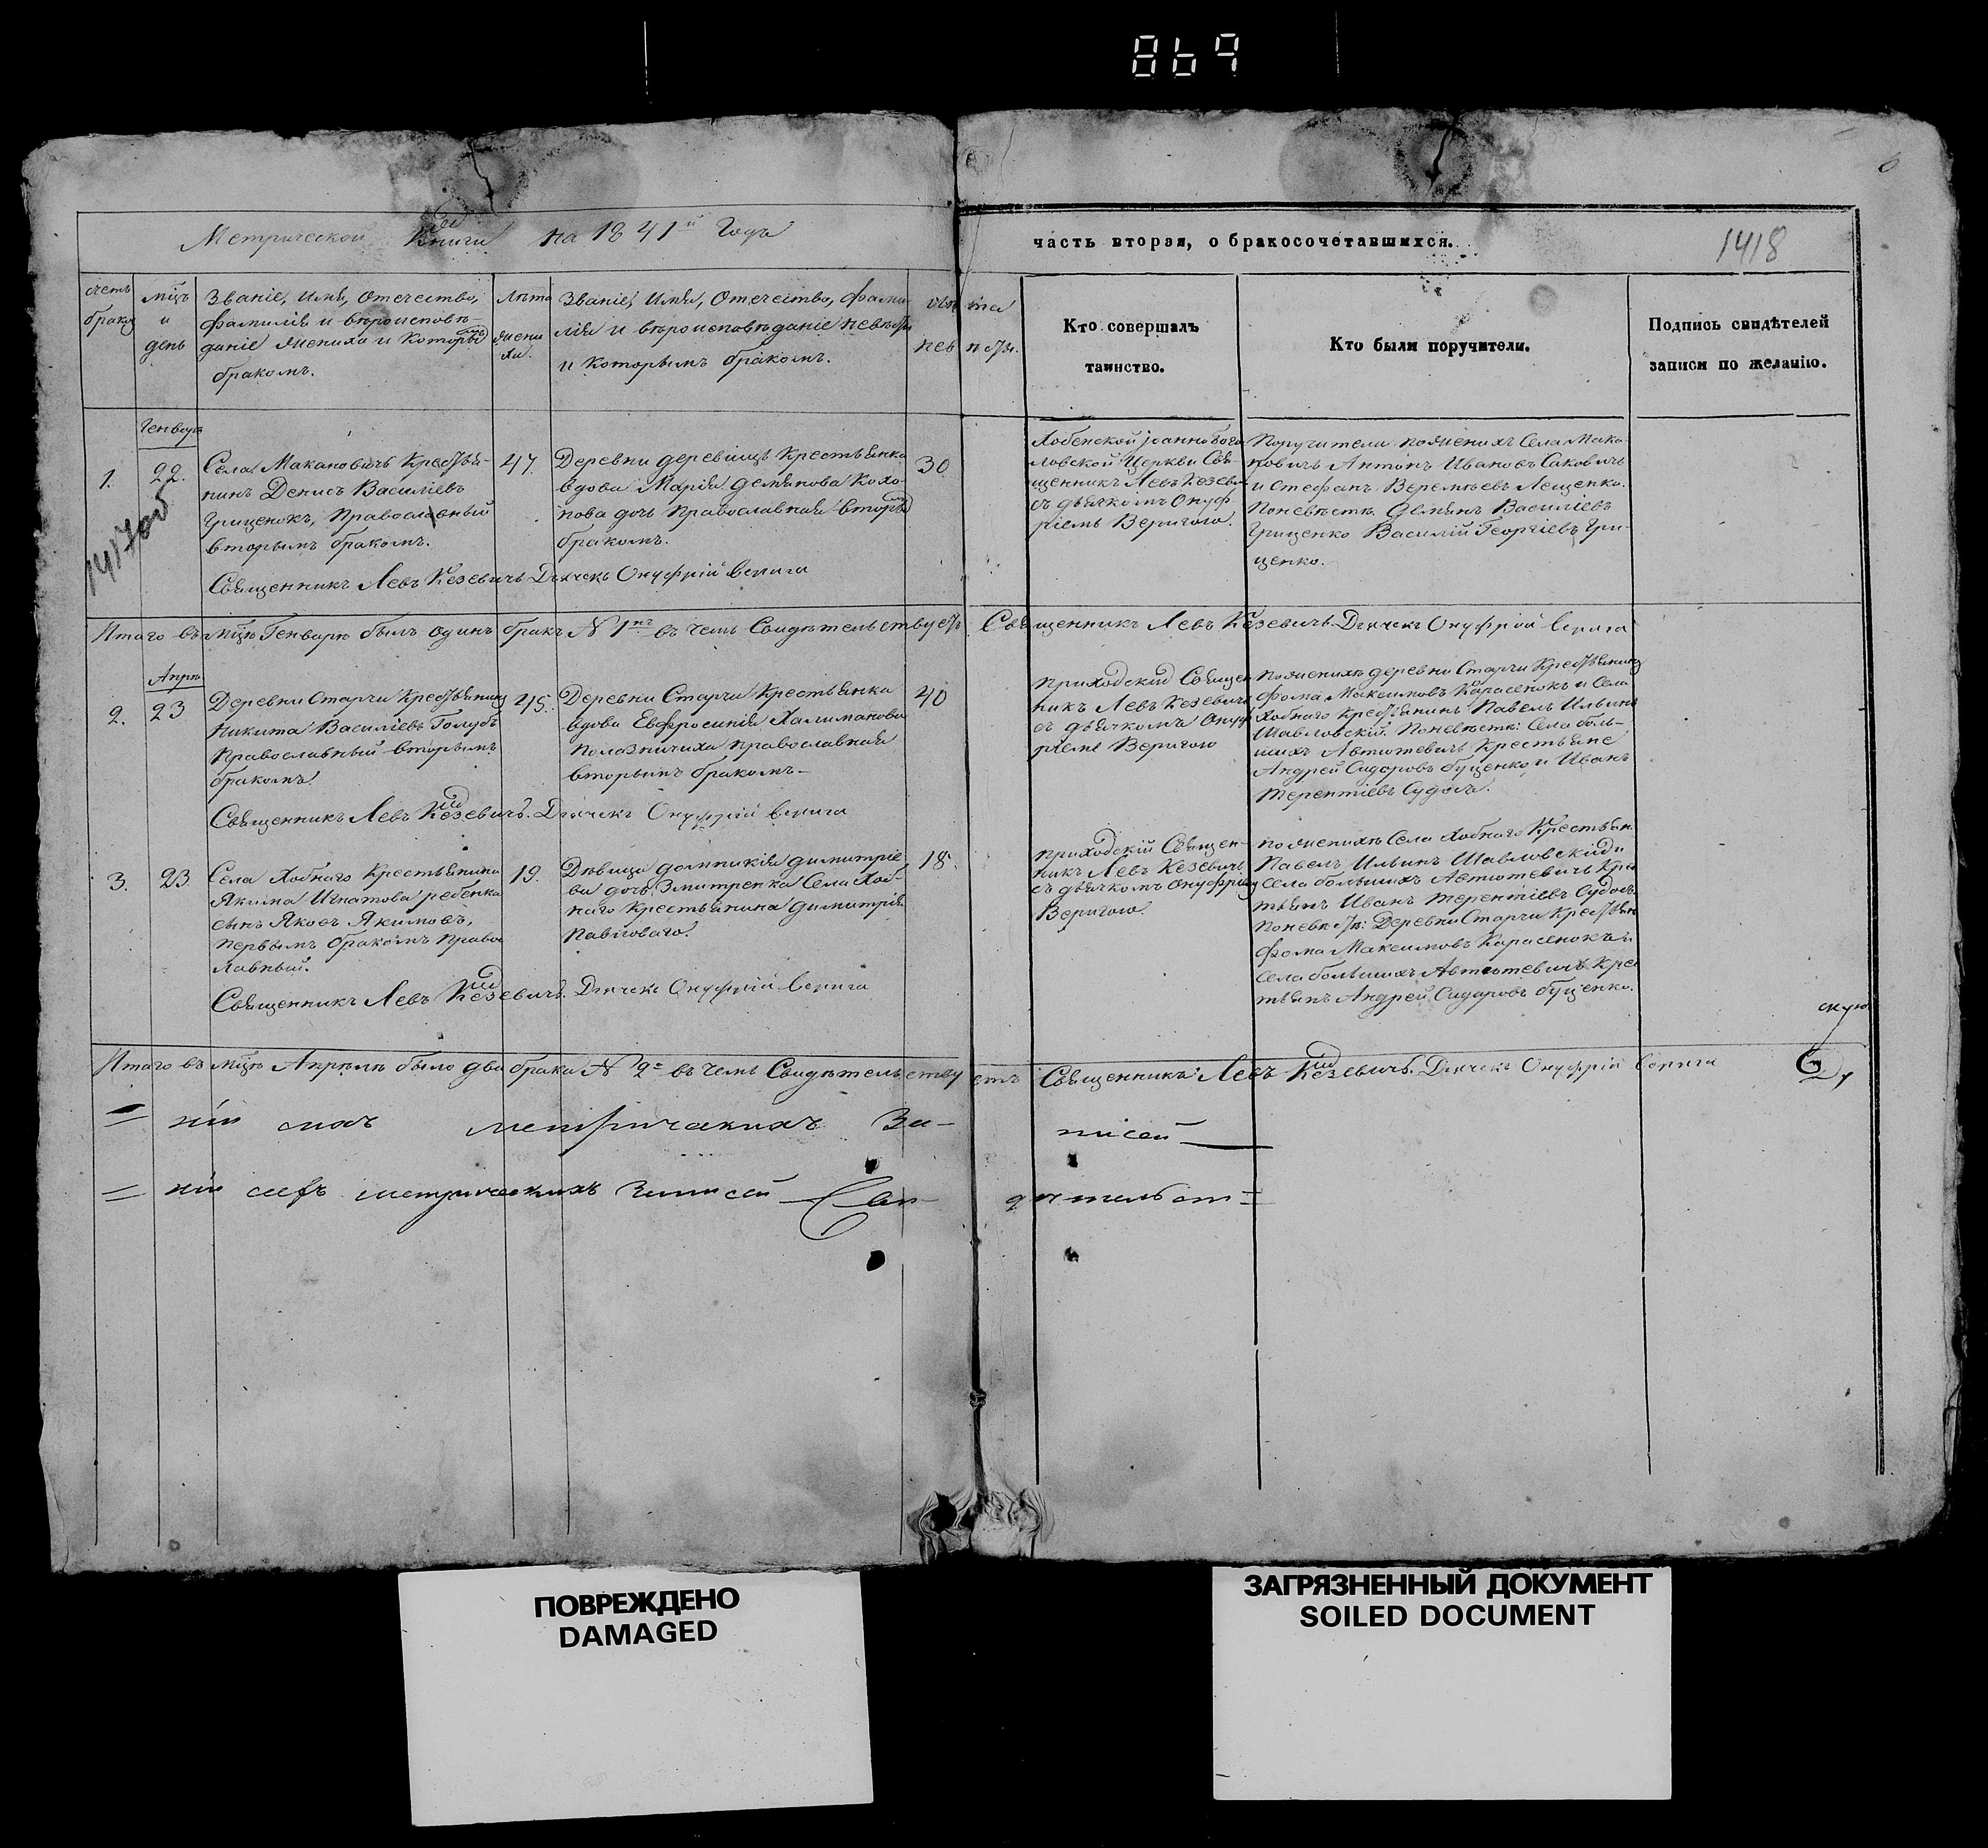 869
6
Метрической Книги на 1841й Годъ
часть вторая, о бракосочетавшихся.
1418
счетъ
браковъ
мць
и
день
Званіе, Имя, Отечество,
фамилія и вѣроисповѣ-
даніе жениха и которымъ
бракомъ.
Лѣта
жени
ха.
Званіе, Имя, Отечество, фами
лія и вѣроисповѣданіе невѣсты
и которымъ бракомъ.
лѣта
невѣсты.
Кто совершалъ
таинство.
Кто были поручители.
Подпись свидѣтелей
записи по желанію.
Генварь
1.
22.
Села Макановичъ Крестья-
нинъ Денисъ Василіевъ
Гриценокъ, Православный
вторымъ бракомъ.
47.
Деревни деревищъ Крестьянка
вдова Марія Демьянова Кохо-
нова дочь Православная вторымъ
бракомъ.
30
Хобенской Іоанно Бого
словской Церкви Свя-
щенникъ Левъ Кезевичъ
съ дьячкомъ Онуф
ріемъ Веригою.
Поручители по женихѣ Села Мака
новичъ Антонъ Ивановъ Саковичъ
и Стефанъ Веремѣевъ Лещенко.
По невѣстѣ. Демьянъ Василіевъ
Гриценко Василій Георгіевъ Гри-
ценко.
Священникъ Левъ Кезевичъ Дьячекъ Онуфрій Верига
Итаго въ мцѣ Генварѣ былъ одинъ бракъ N 1нъ въ чемъ Свидѣтельствуетъ Священникъ Левъ Кезевичъ Дьячекъ Онуфрій Верига
Апрѣ
2.
23
Деревни Старчи Крестьянинъ
Никита Василіевъ Голубъ
Православный вторымъ
бракомъ.
45.
Деревни Старчи Крестьянка
вдова Евфросинія Халиманова
Полозничиха православная
вторымъ бракомъ-
40
Приходскій Священ
никъ Левъ Кезевичъ
съ дьячкомъ Онуф
ріемъ Веригою
По женихѣ деревни Старчи Крестьянинъ
Фома Максимовъ Карасенокъ и Села
Хобнаго Крестьянинъ Павелъ Ильинъ
Шавловскій. По невѣстѣ: Села боль-
шихъ Автютевичъ Крестьяне
Андрей Сидоровъ Буценко, и Иванъ
Терентіевъ Судосъ.
Священникъ Левъ Кезевичъ. Дьячекъ Онуфрій Верига
3.
23
Села Хобнаго Крестьянина
Якима Игнатова ребенка
сынъ Яковъ Якимовъ,
первымъ бракомъ Правос
лавный.
19.
Дѣвица Домникія Димитріе
ва дочь Змитренка Села Хоб-
наго Крестьянина Димитрія
Павловаго.
18.
Приходскій Священ-
никъ Левъ Кезевичъ.
съ дьячкомъ Онуфріемъ
Веригою.
По женихѣ Села Хобнаго Крестьян.
Павелъ Ильинъ Шавловскій и
Села большихъ Автютевичъ Крес
тьянъ Иванъ Терентіевъ Судосъ.
По невѣстѣ: Деревни Старчи Крестьян
Фома Максимовъ Карасенокъ и
Села большихъ Автютевичъ Крес
тьянъ Андрей Сидоровъ Буценко.
Священникъ Левъ Кезевичъ. Дьячекъ Онуфрій Верига
Итаго въ мцѣ Апрѣлѣ было два брака N 2а въ чемъ Свидѣтельствуетъ Священникъ Левъ Кезевичъ. Дьячекъ Онуфрій Верига
метрическихъ За-
писей
метрическихъ Записей Сви-
дѣтельст=
ПОВРЕЖДЕНО
DAMAGED
ЗАГРЯЗНЕННЫЙ ДОКУМЕНТ
SOILED DOCUMENT